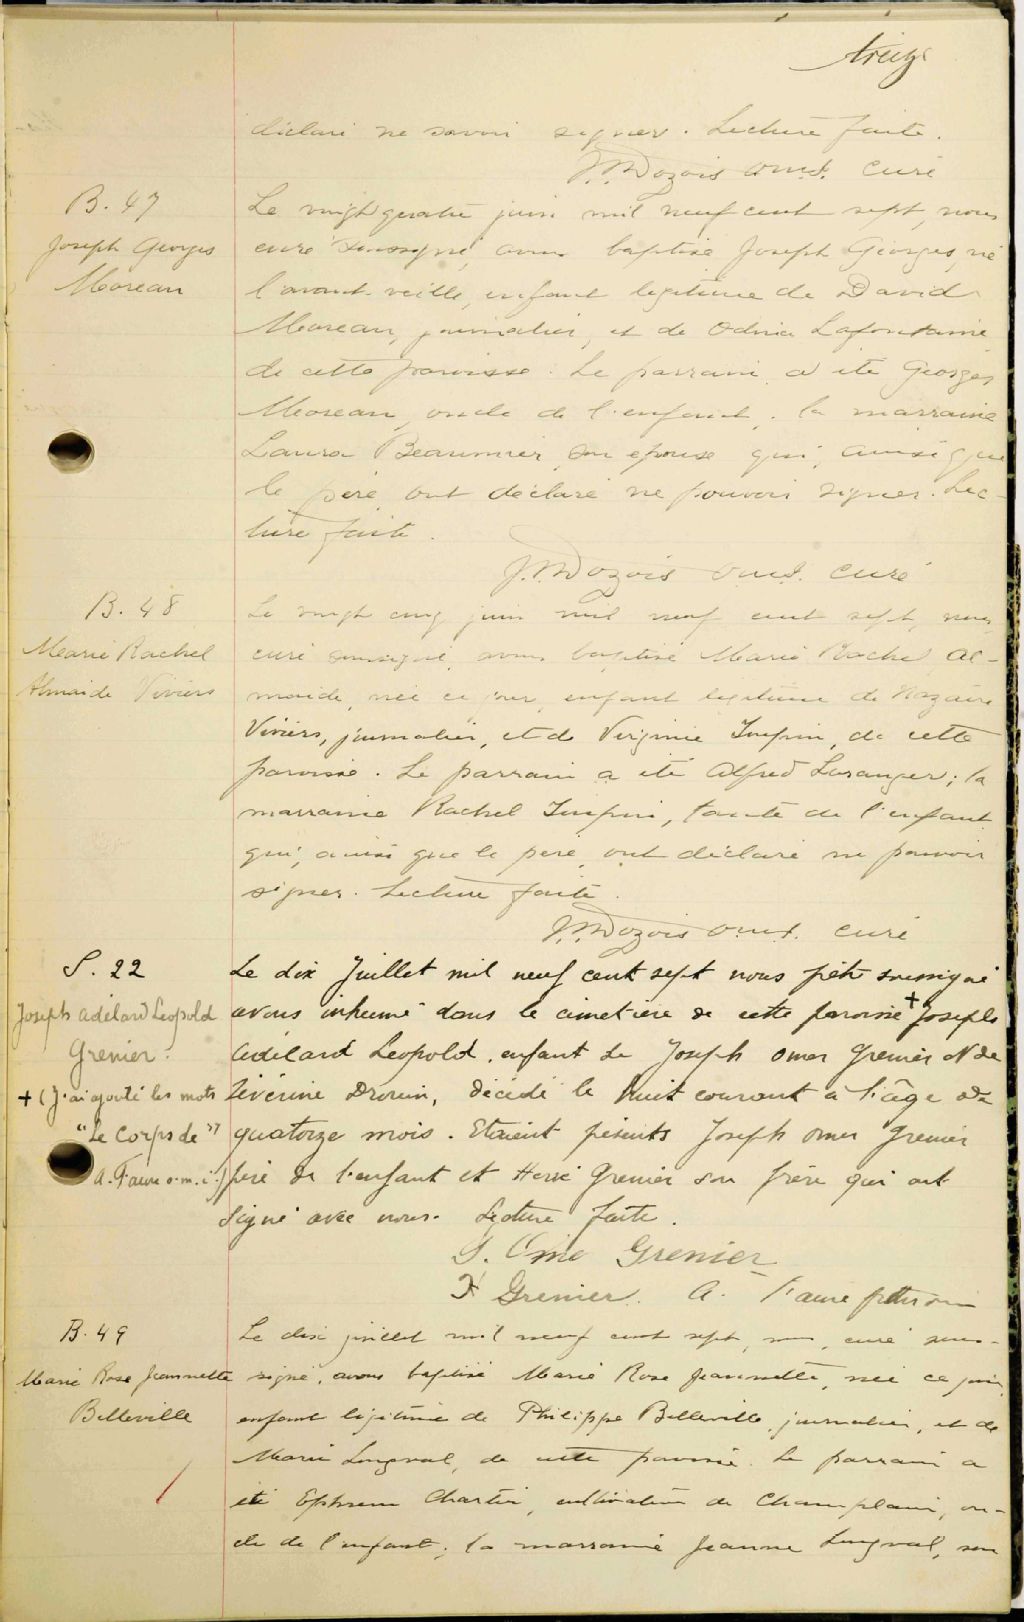 treize
déclaré ne savoir signer. Lecture faite.
J.M. Dozois o.m.i. curé
B. 47
Joseph Georges
Moreau
Le vingt quatre juin mil neuf cent sept, nous
curé soussigné, avons baptisé Joseph Georges, né
l'avant-veille, enfant légitime de David
Moreau, journalier, et de Odina Lafontaine
de cette paroisse. Le parrain a été Georges
Moreau, oncle de l'enfant; la marraine
Laura Beaumier, son épouse qui, ainsi que
le père, ont déclaré ne pouvoir signer. Lec-
ture faite.
J.M. Dozois o.m.i. curé
B. 48
Marie Rachel
Almaide Viviers
Le vingt cinq juin mil neuf cent sept, nous,
curé soussigné, avons baptisé Marie Rachel Al-
maide, née ce jour, enfant légitime de Nazaire
Viviers, journalier, et de Virginie, de cette
paroisse. Le parrain a été Alfred Loranger; la
marraine Rachel, tante de l'enfant
qui, ainsi que le père, ont déclaré ne pouvoir
signer. Lecture faite.
J.M. Dozois o.m.i. curé
S. 22
Joseph Adélard Leopold
Grenier.
+ (J'ai ajouté les mots
"Le Corps de"
A. Faure o.m.i.)
Le dix Juillet mil neuf cent sept nous ptre soussigné
avons inhumé dans le cimetière de cette paroisse + Joseph
Adélard Leopold, enfant de Joseph Omer Grenier & de
Séverine Drouin, décédé le huit courant à l'âge de
quatorze mois. Etaient présents Joseph Omer Grenier
père de l'enfant et Hervé Grenier son frère qui ont
signé avec nous. Lecture faite.
J. Omer Grenier
H Grenier. A. Faure ptre o.m.i.
B. 49
Marie Rose Jeannette
Belleville
Le dix juillet mil neuf cent sept, nous, curé sous-
signé, avons baptisé Marie Rose Jeannette, née ce jour,
enfant légitime de Philippe Belleville, journalier, et de
Marie Longval, de cette paroisse. Le parrain a
été Ephrem Chartier, cultivateur de Champlain, on-
cle de l'enfant; la marraine Jeanne Longval, son